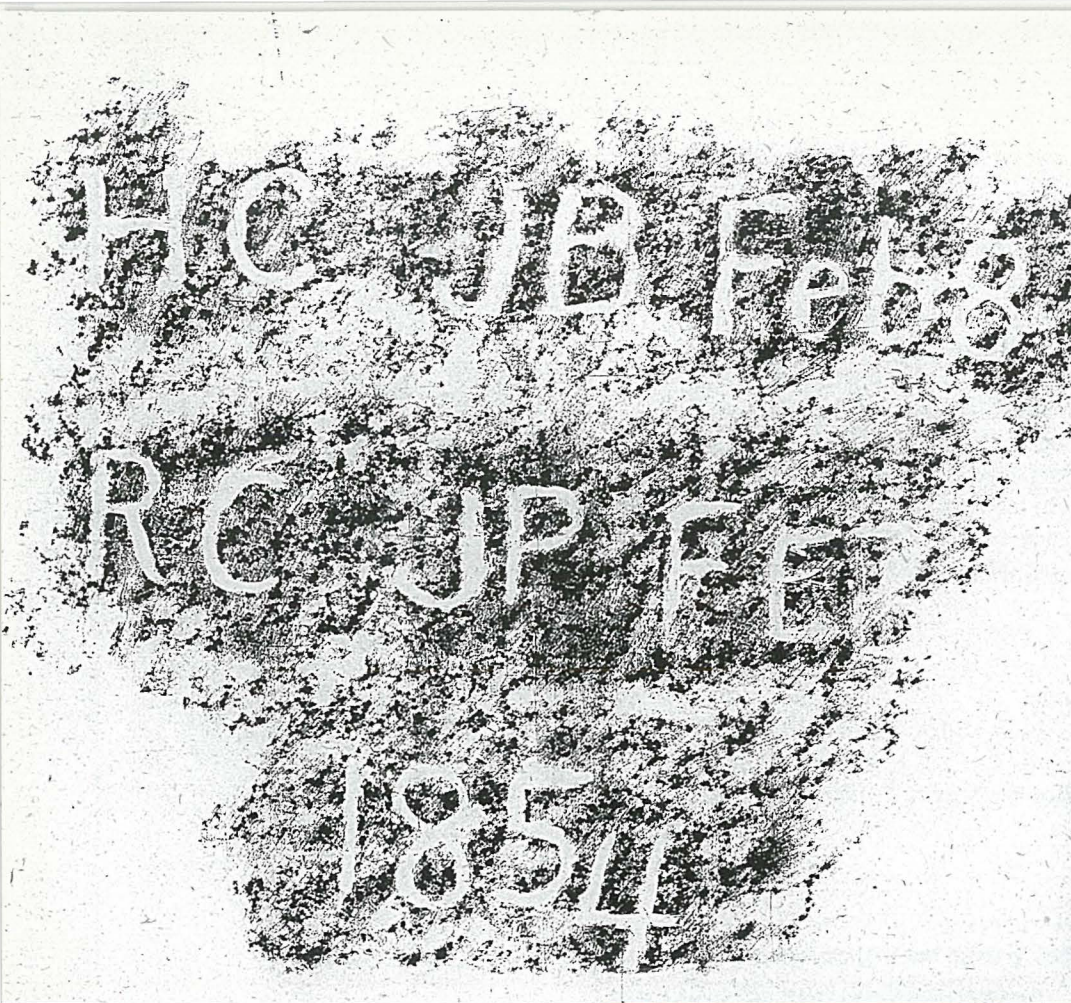 HC JB Feb 8
RC JP FE7
1854